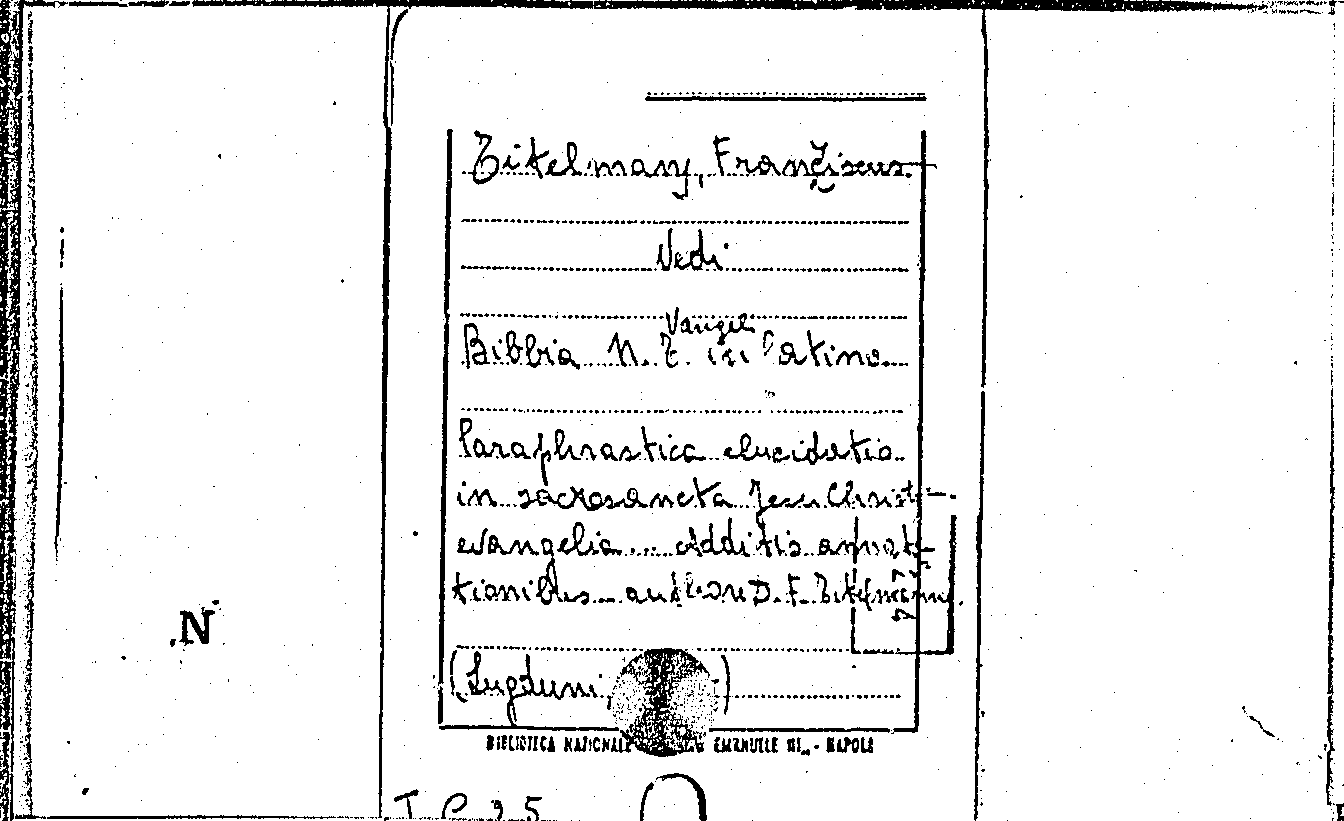 Titelmann, Franciscus
Vedi
Vangeli
Bibbia N. T. in latino
Paraphrastica elucidatio
in sacrosancta Jesu Christi
evangelia... Additis annota-
tionibus... authore D. F. Titelmanno.
N
(Lugduni )
BIBLIOTECA NAZIONALE EMANUELE III - NAPOLI